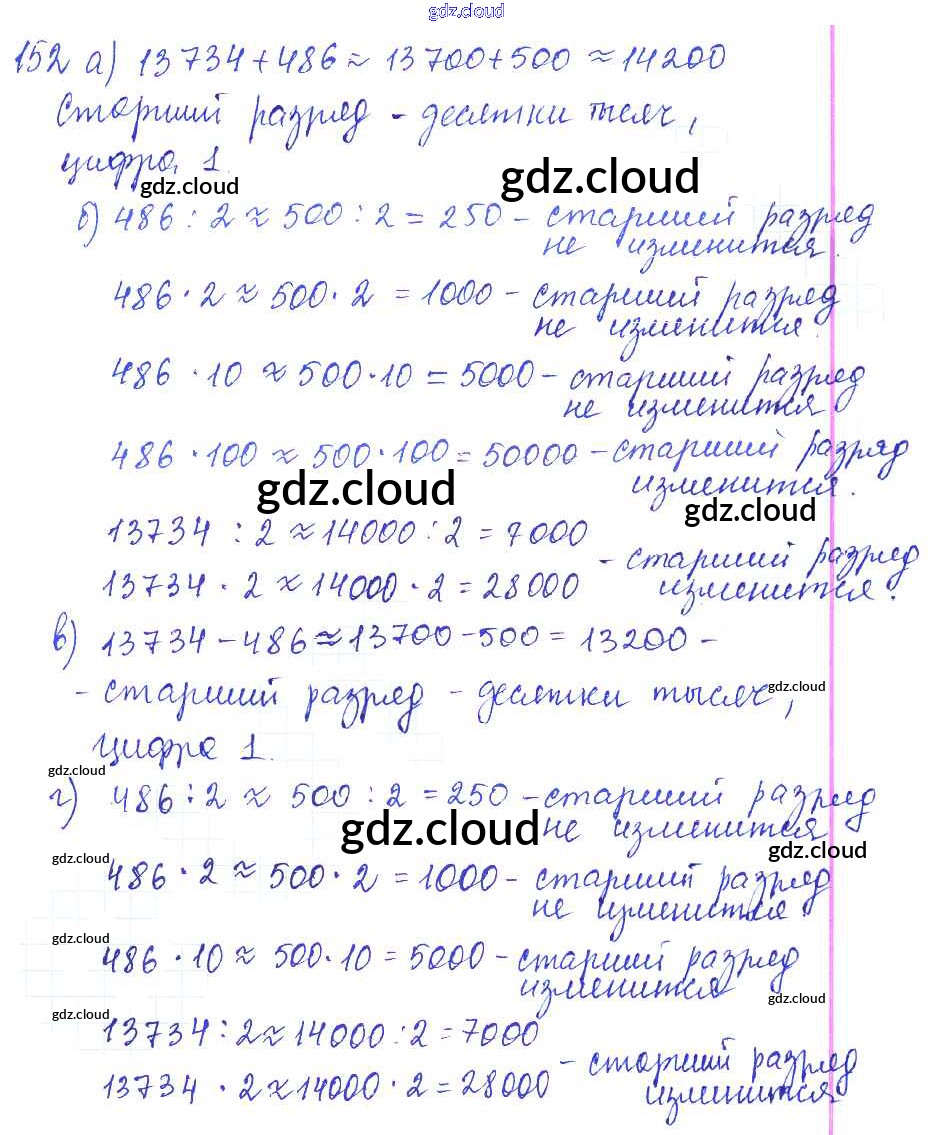 gdz.cloud
152 а) 13734+486≈13700+500≈14200
Старший разряд - десятки тысяч,
цифра 1.
gdz.cloud
gdz.cloud
б) 486:2≈500:2=250 - старший разряд
не изменится.
486·2≈500·2=1000 - старший разряд
не изменится.
486·10≈500·10=5000 - старший разряд
не изменится
486·100≈500·100=50000 - старший разряд
изменится.
gdz.cloud
gdz.cloud
13734:2≈14000:2=7000
- старший разряд
13734·2≈14000·2=28000
изменится.
в) 13734-486≈13700-500=13200 -
- старший разряд - десятки тысяч,
gdz.cloud
цифра 1.
gdz.cloud
г) 486:2≈500:2=250 - старший разряд
не изменится
gdz.cloud
gdz.cloud
gdz.cloud
486·2≈500·2=1000 - старший разряд
не изменится.
gdz.cloud
486·10≈500·10=5000 - старший разряд
изменится
gdz.cloud
gdz.cloud
13734:2≈14000:2=7000
- старший разряд
13734·2≈14000·2=28000
изменится